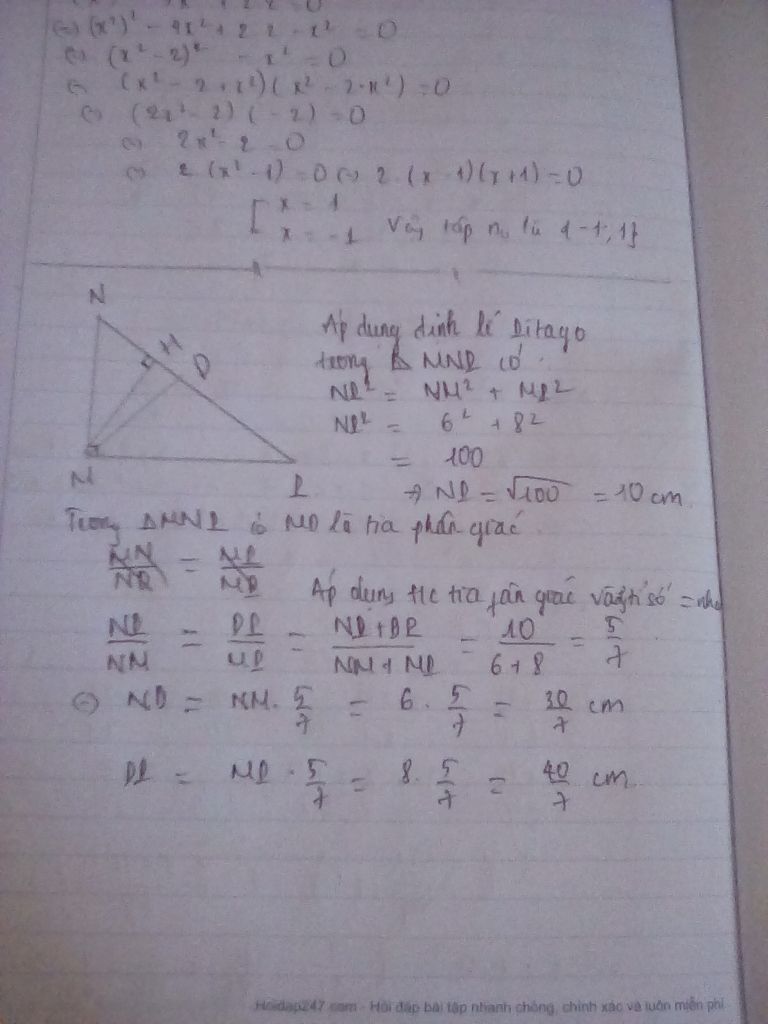 (=) (x²)² - 4x² + 2 2 - x² = 0
(=) (x² - 2)² - x² = 0
(=) (x² - 2 + x²)(x² - 2 - x²) = 0
(=) (2x² - 2)(-2) = 0
(=) 2x² - 2 = 0
(=) 2 (x² - 1) = 0 (=) 2 (x - 1)(x + 1) = 0
[ x = 1
x = -1 Vậy tập no là {-1; 1}
N
H
D
M
P
Áp dụng định lí Pitago
trong Δ MNP có
NP² = NM² + MP²
NP² = 6² + 8²
= 100
⇒ NP = √100 = 10 cm
Trong ΔMNP có MD là tia phân giác
MN/ND = MP/MD
Áp dụng t/c tia phân giác và tỉ số = nhau
ND/NM = DP/MP = ND + DP/NM + MP = 10/6 + 8 = 5/7
(=) ND = NM . 5/7 = 6 . 5/7 = 30/7 cm
DP = MP . 5/7 = 8 . 5/7 = 40/7 cm
Hoidap247.com - Hỏi đáp bài tập nhanh chóng, chính xác và luôn miễn phí